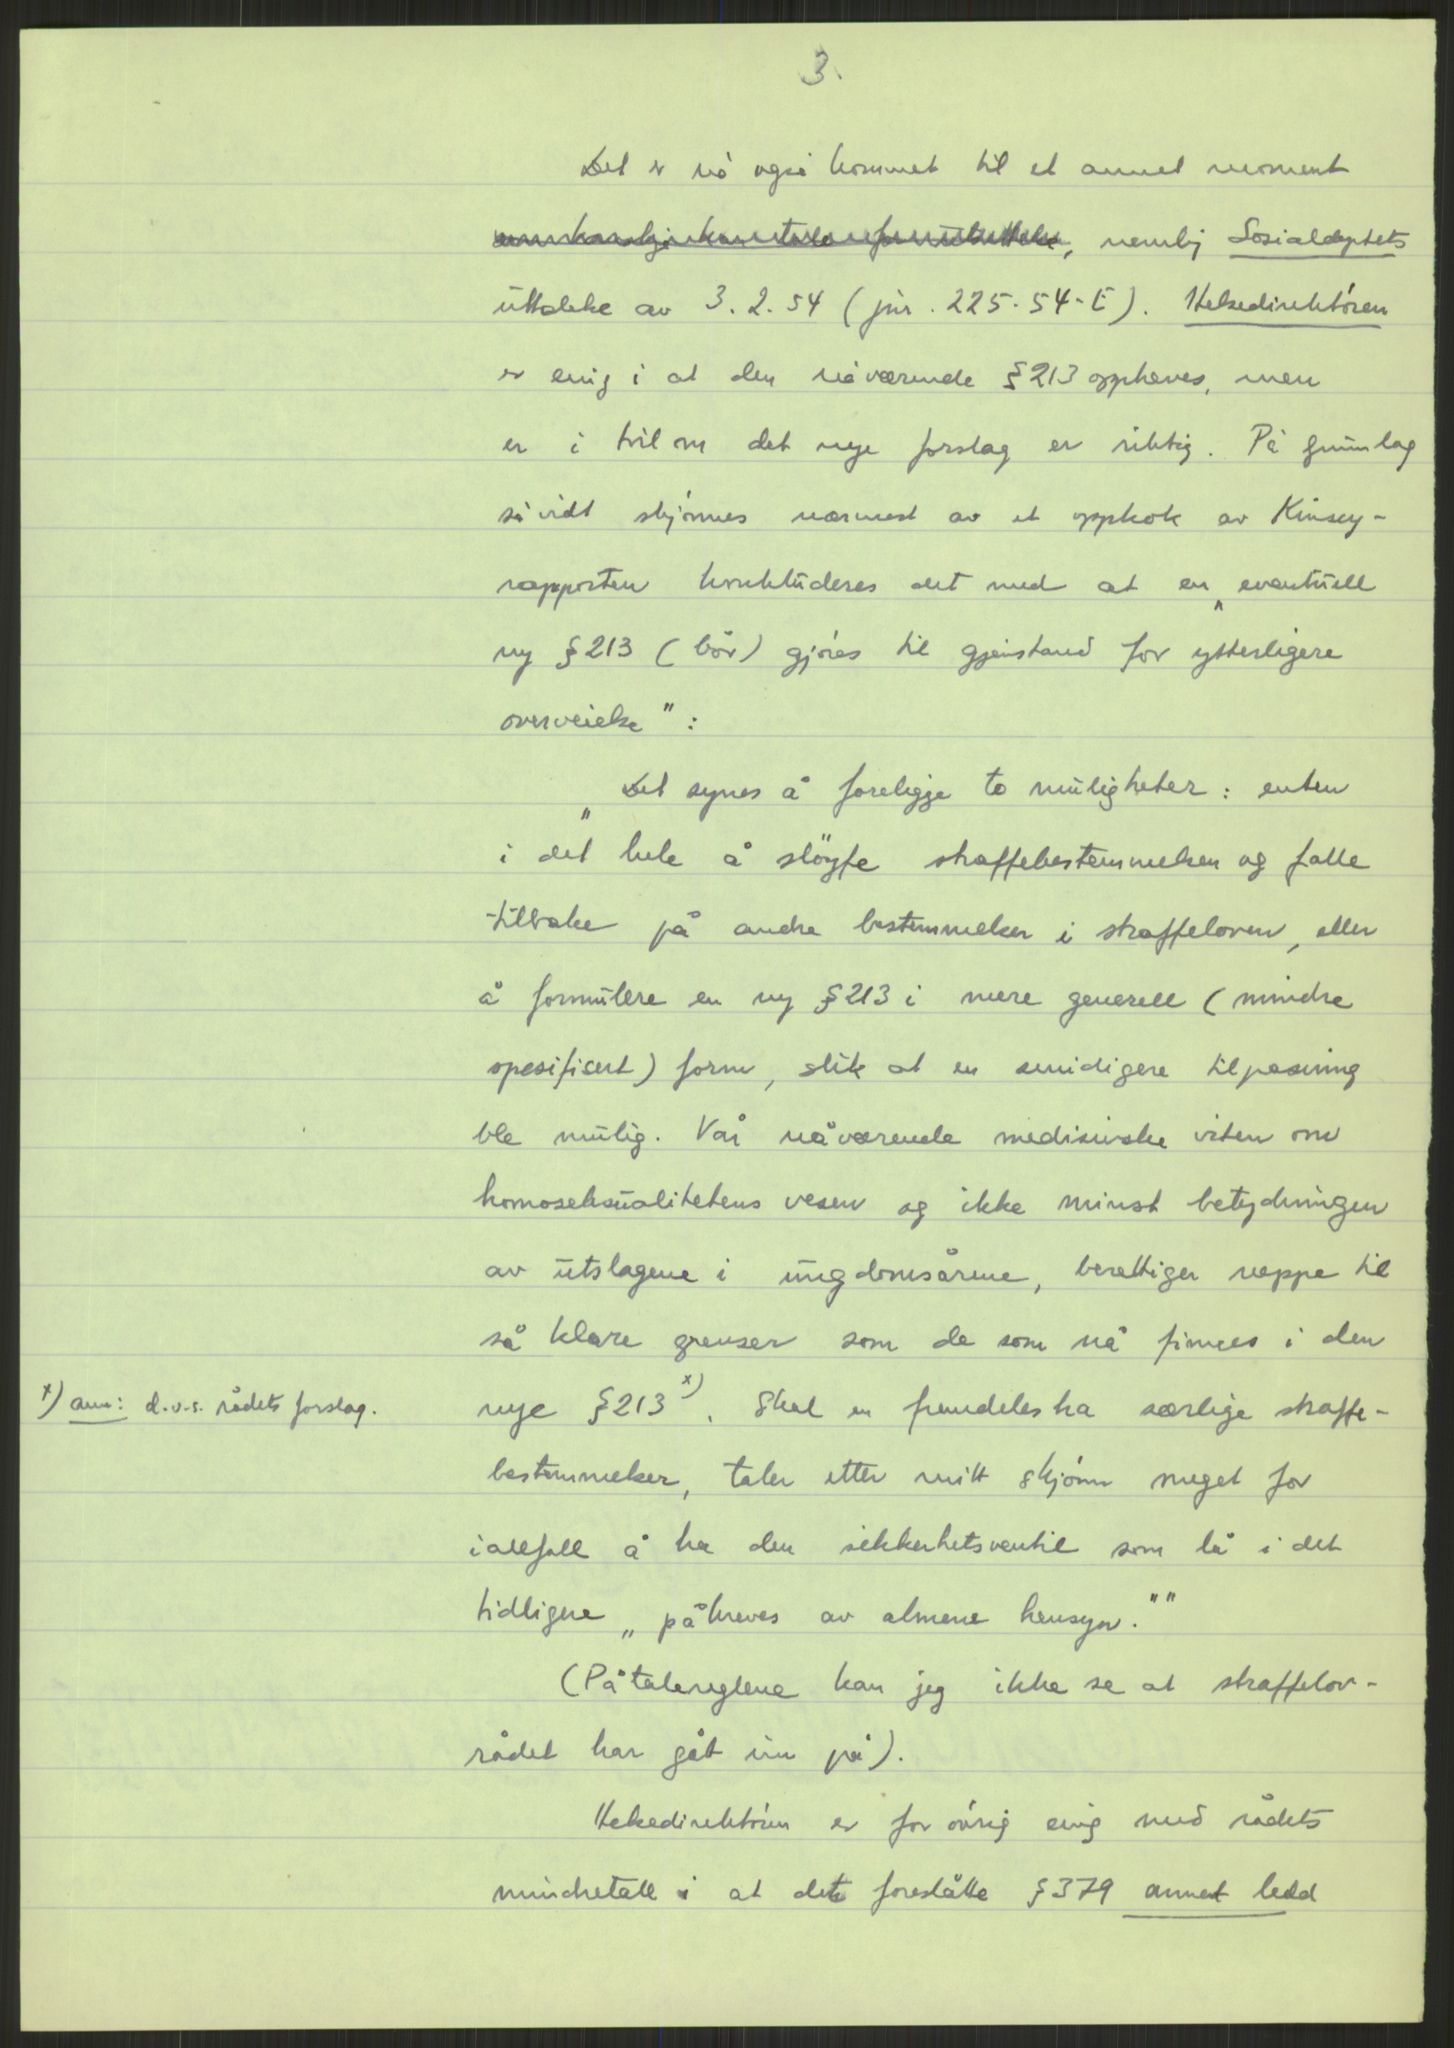 3.
Det er nå også kommet til et annet moment
som kanskje kan tale for utsettelse, nemlig Sosialdeptets
uttalelse av 3.2.54 (jnr. 225-54-E). Helsedirektören
er enig i at den nåværende §213 oppheves, men
er i tvil om det nye forslag er riktig. På grunnlag
såvidt skjönnes nærmest av et oppkok av Kinsey-
rapporten konkluderes det med at en „eventuell
ny §213 (bör) gjöres til gjenstand for ytterligere
overveielse":
„Det synes å foreligge to muligheter: enten
i det hele å slöyfe straffebestemmelsen og falle
tilbake på andre bestemmelser i straffeloven, eller
å formulere en ny §213 i mere generell (mindre
spesifisert) form, slik at en smidigere tilpasning
ble mulig. Vår nåværende medisinske viten om
homoseksualitetens vesen og ikke minst betydningen
av utslagene i ungdomsårene, berettiger neppe til
så klare grenser som de som nå finnes i den
x) anm: d.v.s. rådets forslag.
nye §213 x). Skal en fremdeles ha særlige straffe-
bestemmelser, taler etter mitt skjönn meget for
iallfall å ha den sikkerhetsventil som lå i det
tidligere „påkreves av almene hensyn.""
(Påtalereglene kan jeg ikke se at straffelov-
rådet har gåt inn på).
Helsedirektören er for övrig enig med rådets
mindretall i at det foreslåtte §379 annet ledd